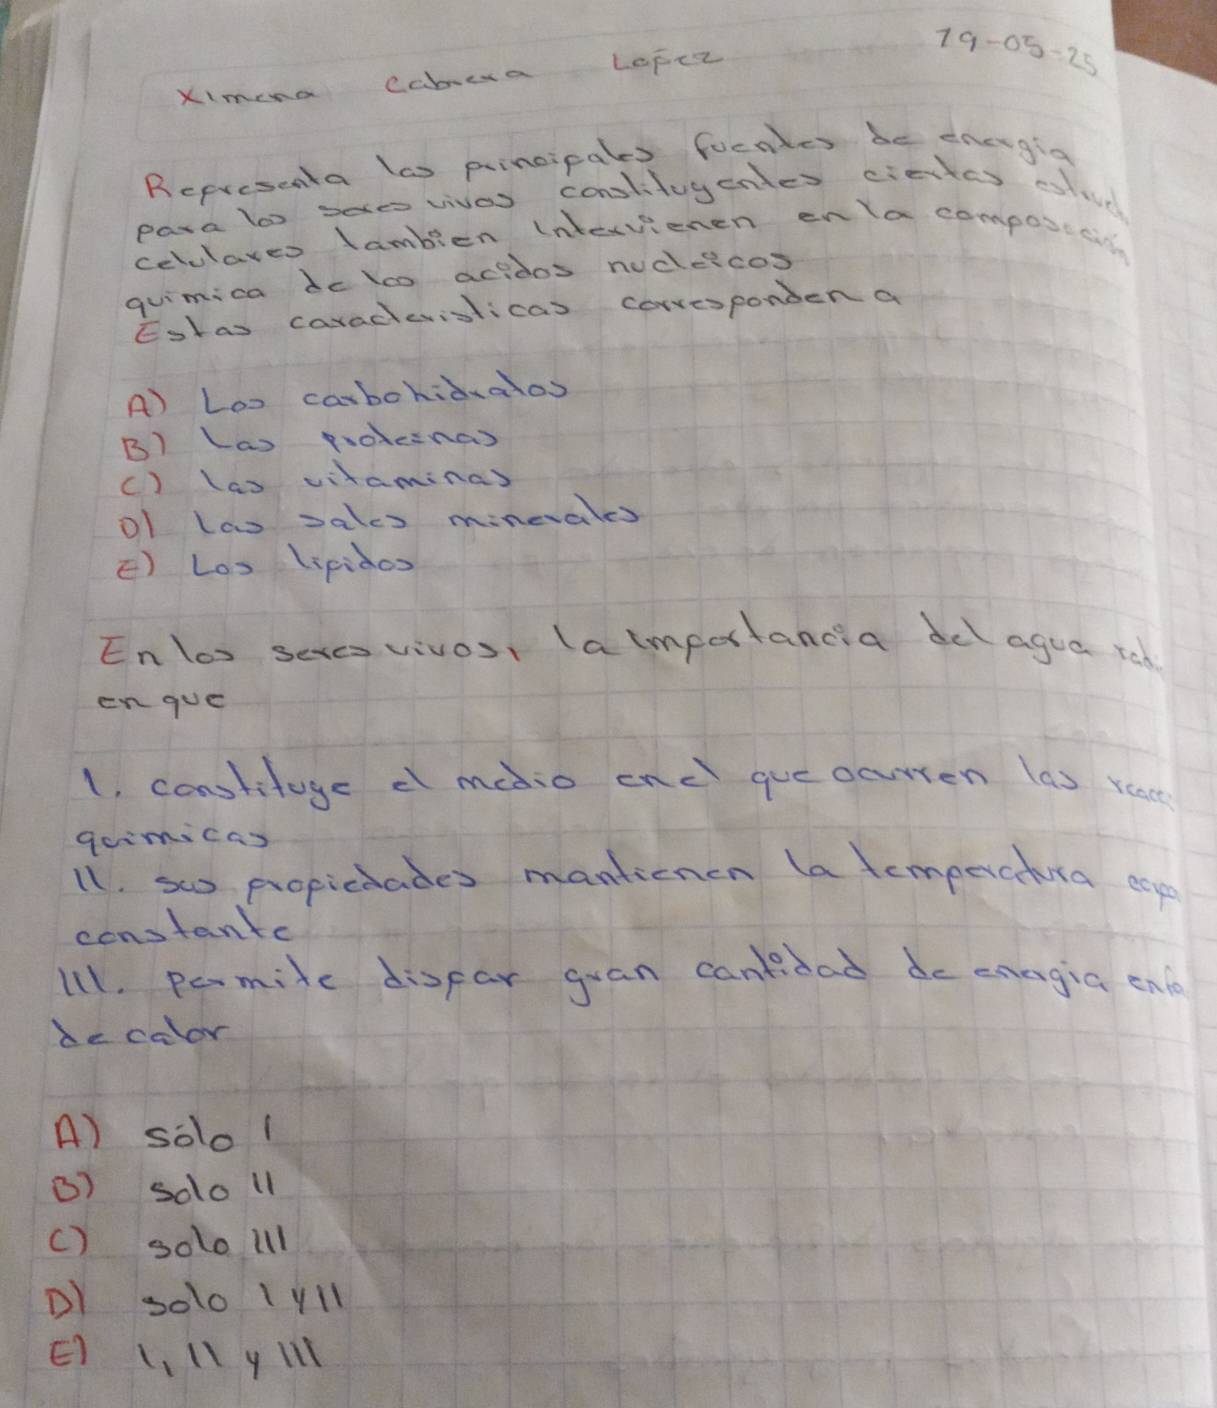 19-05-25
Ximena Cabrera Lopez
Representa las principales fuentes de energia
para los seres vivos constituyentes ciertas
celulares tambien intervienen en la composicion
quimica de los acidos nucleicos
Estas caracteristicas corresponden a
A) Los carbohidratos
B) Las proteinas
C) las vitaminas
D) Las sales minerales
E) Los lipidos
En los seres vivos, la importancia del agua
en que
I. constituye el medio en el que ocurren las
quimicas
II. sus propiedades mantienen la temperatura
constante
III. permite dispar gran cantidad de energia
de calor
A) sólo I
B) solo II
C) solo III
D) solo I y II
E) I, II y III